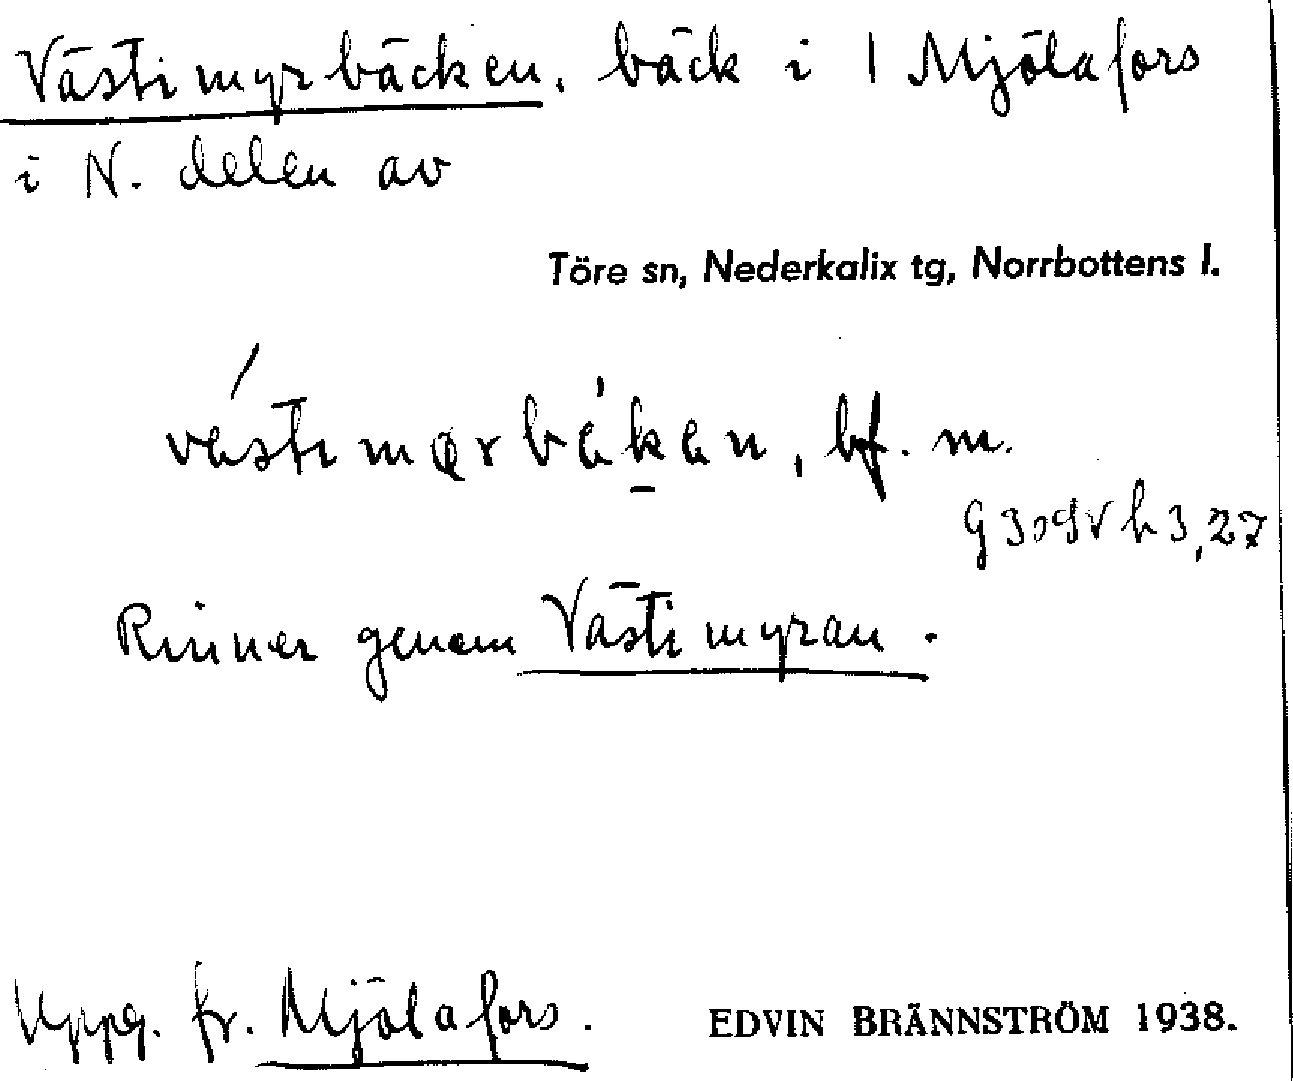 Västimyrbäcken, bäck i 1 Mjölafors
i N. delen av
Töre sn, Nederkalix tg, Norrbottens l.
bf. m.
Rinner genom Västimyran.
Uppg. fr. Mjölafors.
EDVIN BRÄNNSTRÖM 1938.